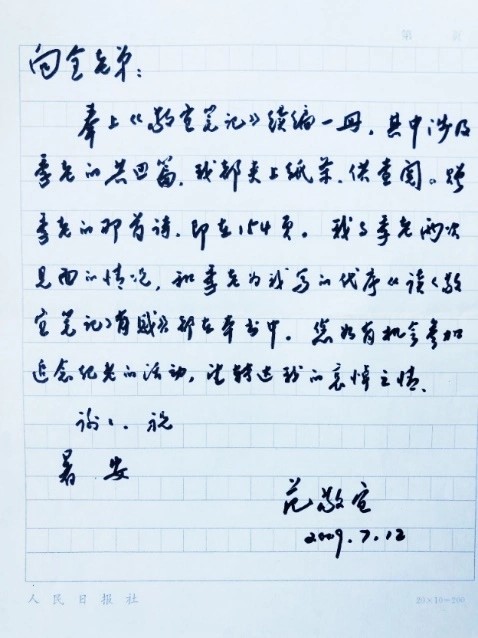 第 页
向全老弟：
奉上《敬宜笔记》续编一册，其中涉及
季老的共四篇，我都夹上纸条，供查阅。赠
季老的那首诗，即在154页。我与季老两次
见面的情况，和季老为我写的代序《读〈敬
宜笔记〉有感》都在本书中。您如有机会参加
追念纪老的活动，望转达我的哀悼之情。
谢谢。祝
暑安
范敬宜
2009.7.12
人民日报社 20×10=200